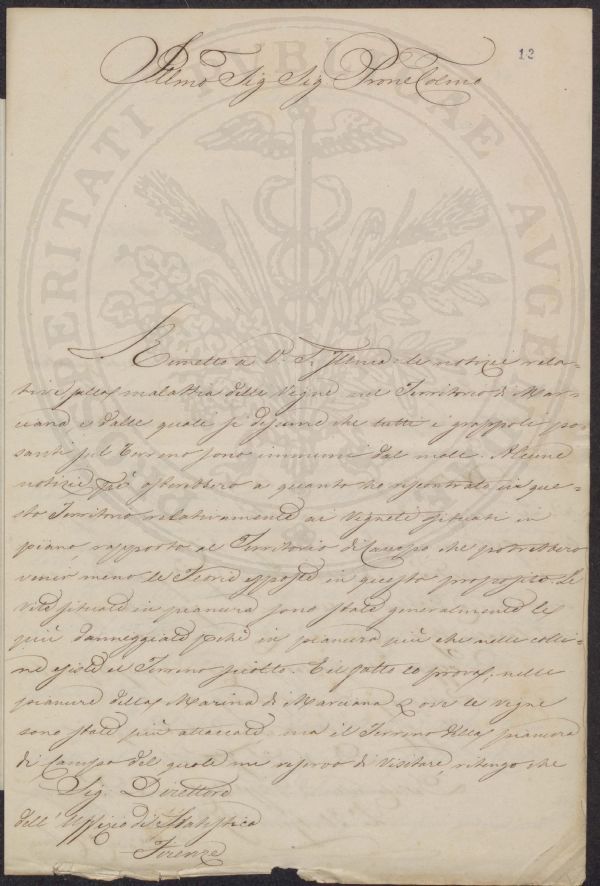 12
Illmo Sig. Sig. Prone Colmo
Rimetto a V. S. Illma le notizie rela=
tive alla malattia delle Vigne nel Territorio di Mar=
ciana e dalle quali si desume che tutti i grappoli po=
santi sul Terreno sono immuni dal male. Alcune
notizie però
a quanto ho riscontrato in que=
sto Territorio relativamente ai Vigneti situati in
piano, rapporto al Territorio di Campo che potrebbero
venir meno le Teorie esposte in questo proposito. Le
Viti situate in pianura sono state generalmente le
più danneggiate pchè in pianura più che nelle colli=
ne esiste il Terreno sciolto. E il fatto lo prova, nelle
pianure della Marina di Marciana ove le Vigne
sono state più attaccate ma il Terreno della pianura
di Campo del quale mi riservo di visitare, ritengo che
Sig. Direttore
dell'Uffizio di Statistica
Firenze
PROSPERITATI PUBLICAE AUGENDAE